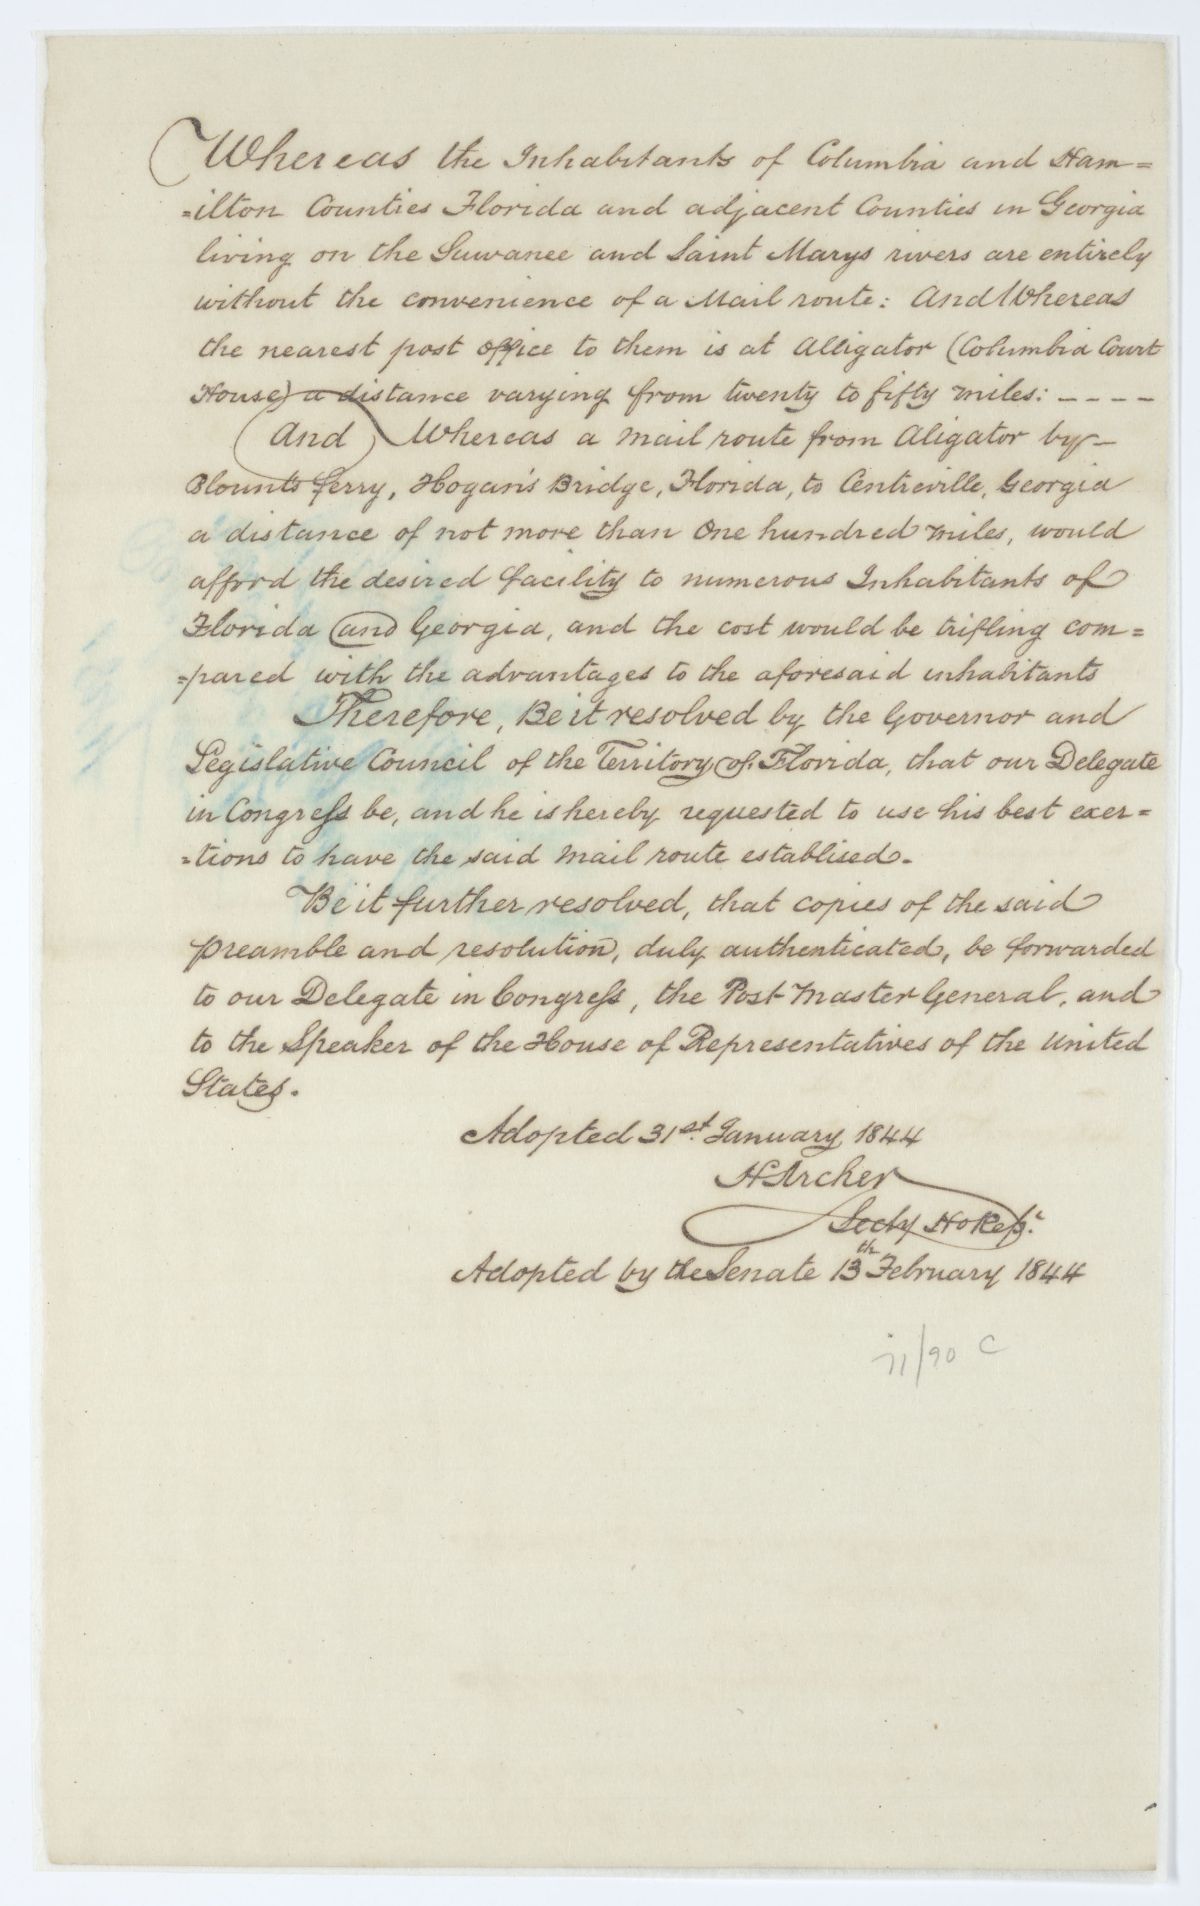 Whereas the Inhabitants of Columbia and Ham=
=ilton Counties Florida and adjacent Counties in Georgia
living on the Suwanee and Saint Marys rivers are entirely
without the convenience of a Mail route: And Whereas
the nearest post office to them is at Alligator (Columbia Court
House) a distance varying from twenty to fifty miles: - - - -
And Whereas a mail route from Aligator by-
Blounts ferry, Hogan's Bridge, Florida, to Centreville, Georgia
a distance of not more than One hundred miles, would
afford the desired facility to numerous Inhabitants of
Florida and Georgia, and the cost would be trifling com=
=pared with the advantages to the aforesaid inhabitants
Therefore, Be it resolved by the Governor and
Legislative Council of the Territory of Florida, that our Delegate
in Congress be, and he is hereby requested to use his best exer=
=tions to have the said mail route establised.
Be it further resolved, that copies of the said
preamble and resolution, duly authenticated, be forwarded
to our Delegate in Congress, the Post Master General, and
to the Speaker of the House of Representatives of the United
States.
Adopted 31st January 1844
H Archer
Secty Ho Reps.
Adopted by the Senate 13th February 1844
/90 C